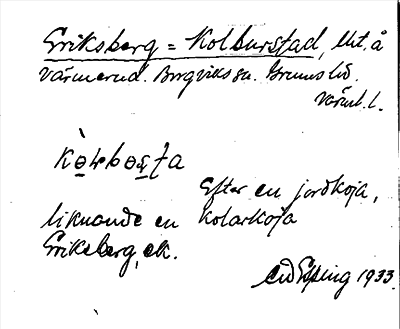 Eriksberg = Kolburstad, lht. å
Värmerud. Borgviks sn. Grums hd.
Värml. l.
Efter en jordkoja,
liknande en kolarkoja
Eriksberg, ek.
Espling 1933.